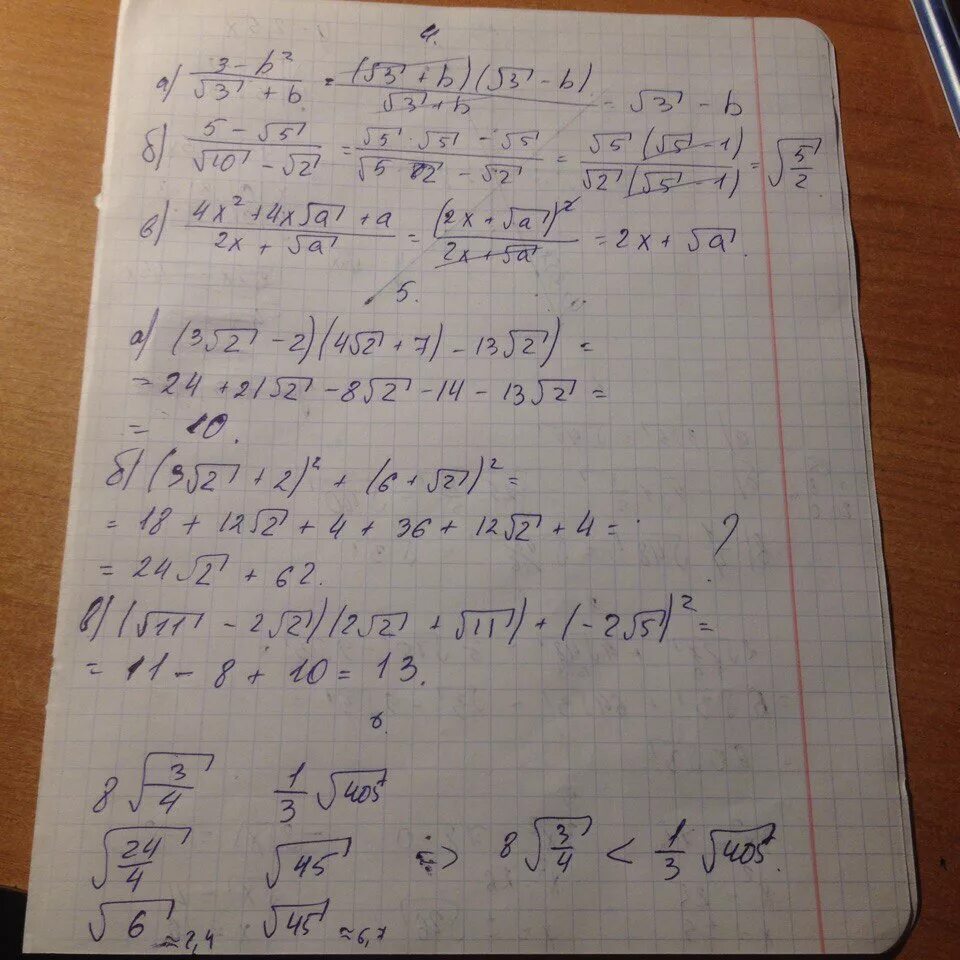 4.
а) (3 - b²)/(√3 + b) = ((√3 + b)(√3 - b))/(√3 + b) = √3 - b
б) (5 - √5)/(√10 - √2) = (√5 · √5 - √5)/(√5 · √2 - √2) = (√5(√5 - 1))/(√2(√5 - 1)) = √(5/2)
в) (4x² + 4x√a + a)/(2x + √a) = (2x + √a)²/(2x + √a) = 2x + √a.
5.
а) (3√2 - 2)(4√2 + 7) - 13√2) =
= 24 + 21√2 - 8√2 - 14 - 13√2 =
= 10.
б) (3√2 + 2)² + (6 + √2)² =
= 18 + 12√2 + 4 + 36 + 12√2 + 4 = ?
= 24√2 + 62.
в) (√11 - 2√2)(2√2 + √11) + (-2√5)² =
= 11 - 8 + 10 = 13.
8√(3/4) 1/3 √405
√(24/4) √45 => 8√(3/4) < 1/3 √405.
√6 ≈2,4 √45 ≈6,7